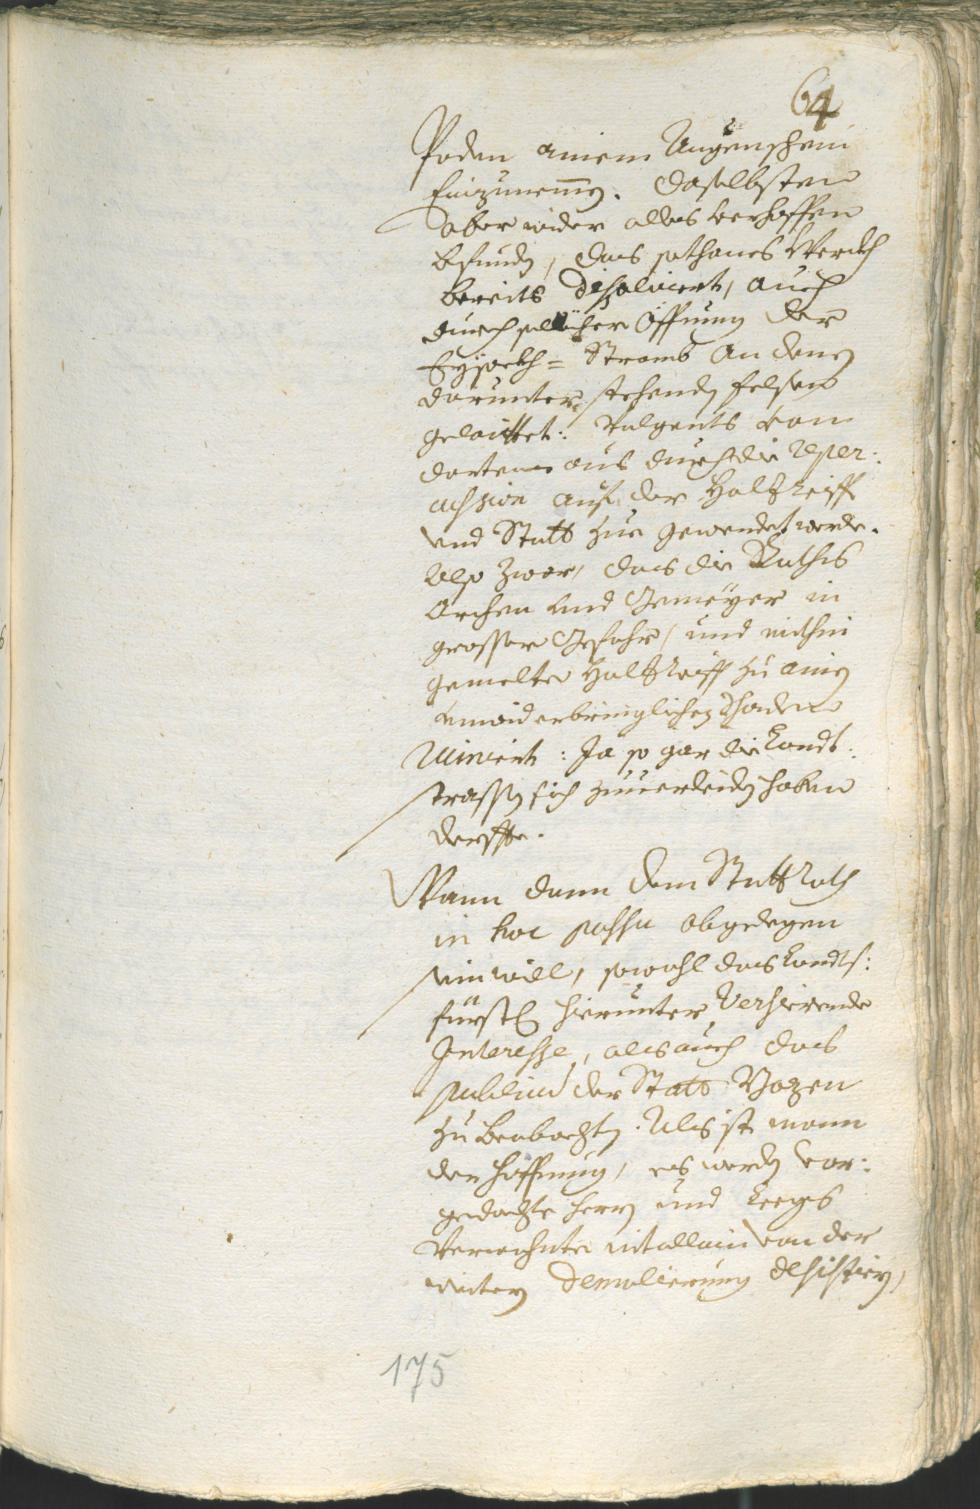 64
Poden ainem Augenschein
Einzunemen. daselbsten
aber wider alles verhoffen
befunden, das sothanes Werckh
bereits disolviert, auch
durch solcher Öffnung der
Eysackh= Stromb an denen
darunter stehenden felsen
gelaithet: Volgents von
dorten aus durch die Reper:
cussion auf der Holzreiff
und Statt zue gewendet werde.
Also zwar, das die Raths
Archen und Gemeyer in
grosser Gefahr, und mithin
gemelter Holzreiff zu ainen
unwiderbringlichen schaden
Ruiniert: Ja so gar die Landt:
strassen sich zuuerleiden haben
derffte.
Wann dann dem Stattrath
in hoc passu obgelegen
sein will, sowohl das Landts:
fürstl hierunter Versierende
Interesse, als auch das
publicum der Statt Bozen
zu beobachten. Als ist mann
der Hoffnung, es werden vor:
gedachte herrn und
Verwohnte nit allain von der
weitern demolierung desistiern,
175